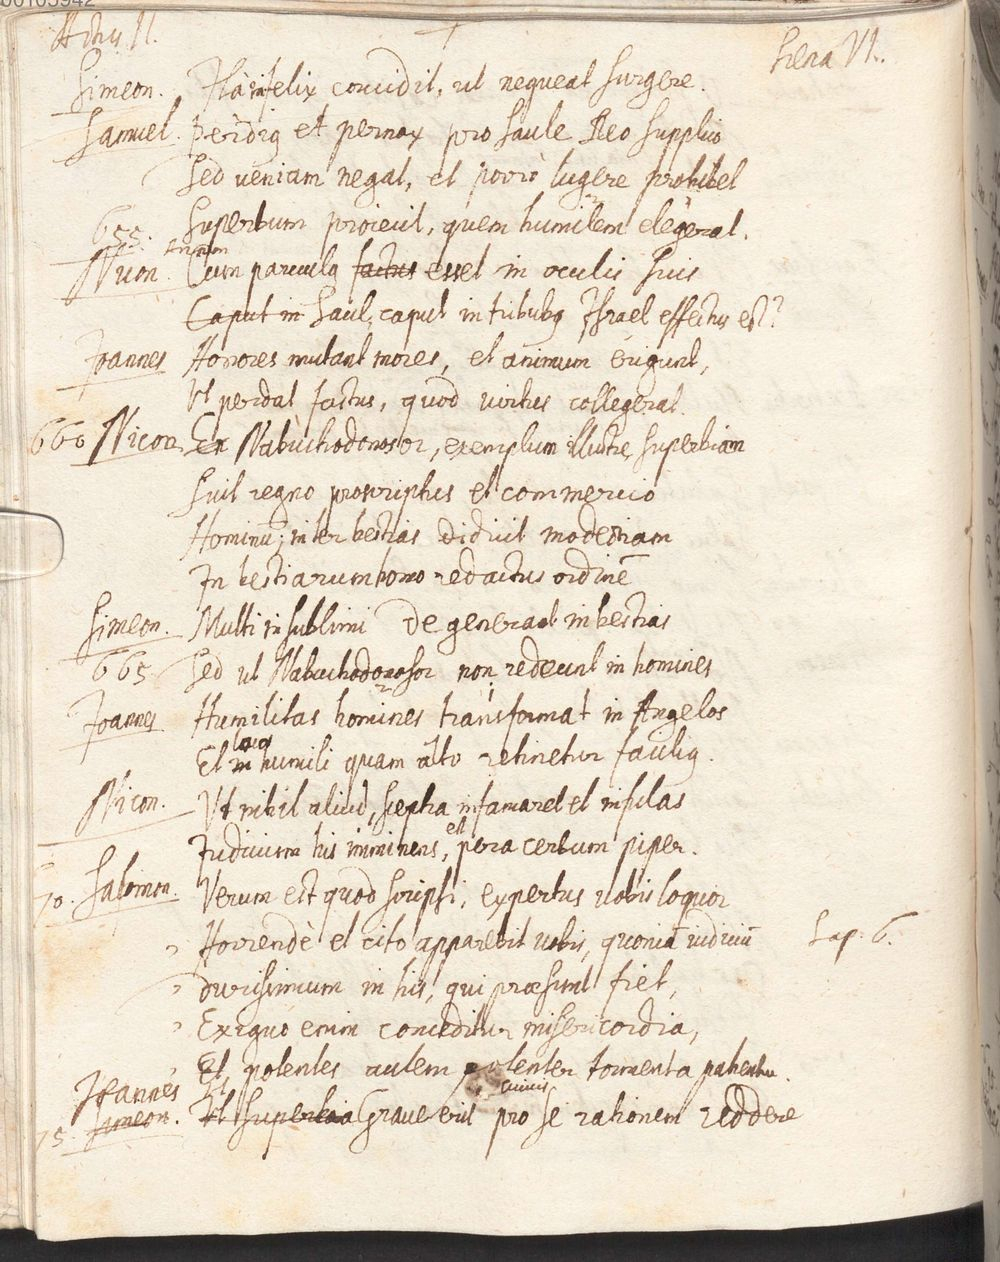 00105942
Actus II.
Scena VI.
Simeon. Ita infelix concidit, ut nequeat surgere.
Samuel. Perdig et pernox pro Saule Deo supplico
Sed veniam negat, et porrò lugere prohibet
655. Superbum proiecit, quem humilem elegerat.
Nicon. Cum parvulus factus esset in oculis suis
Caput in Saul, caput in tribubus Israel effectus est?
Joannes Honores mutant mores, et animum erigunt,
Ut perdat fastus, quod virtus collegerat.
660 Nicon. En Nabuchodonosor, exemplum illustre superbiam
Suit regno proscriptus et commercio
Hominū; inter bestias didicit modestiam
In bestiarum homo redactus ordinē
Simeon. Multi in sublimi degenerant in bestias
665 Sed ut Nabuchodonosor non redeunt in homines
Joannes Humilitas homines transformat in Angelos
Et in loco humili quam alto retinetur facilius.
Nicon. Ut nihil aliud, sceptra infamaret et infulas
Judicium his imminens, est pera cerbum piper.
70. Salomon. Verum est quod scripsi, expertus vobis loquor
Horrendè et cito apparebit vobis, quoniā iudiciū Sap. 6.
durissimum in his, qui præsunt fiet,
Exiguo enim conceditur misericordia,
Et potentes autem potenter tormenta patientur.
Joannes
75 Simeon. Et superbia Grave erit pro se rationem reddere